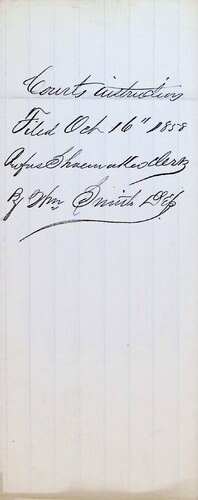 Courts instructions
Filed Oct 16" 1858
Rufus Shoemaker Clerk
By Wm Smith Dep